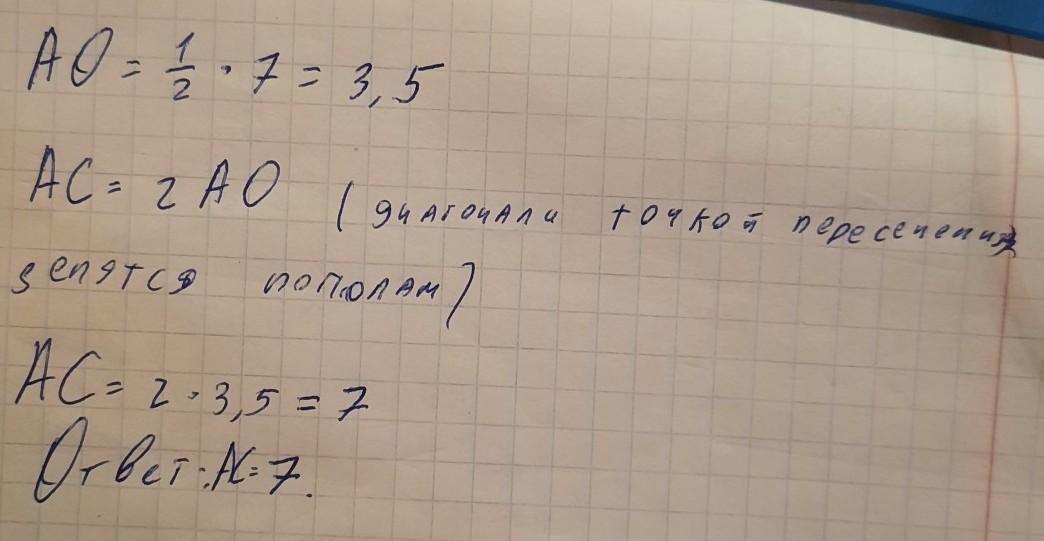 AO = 1/2 · 7 = 3,5
AC = 2 AO (диагонали точкой пересечения
делятся пополам)
AC = 2 · 3,5 = 7
Ответ: AC = 7.